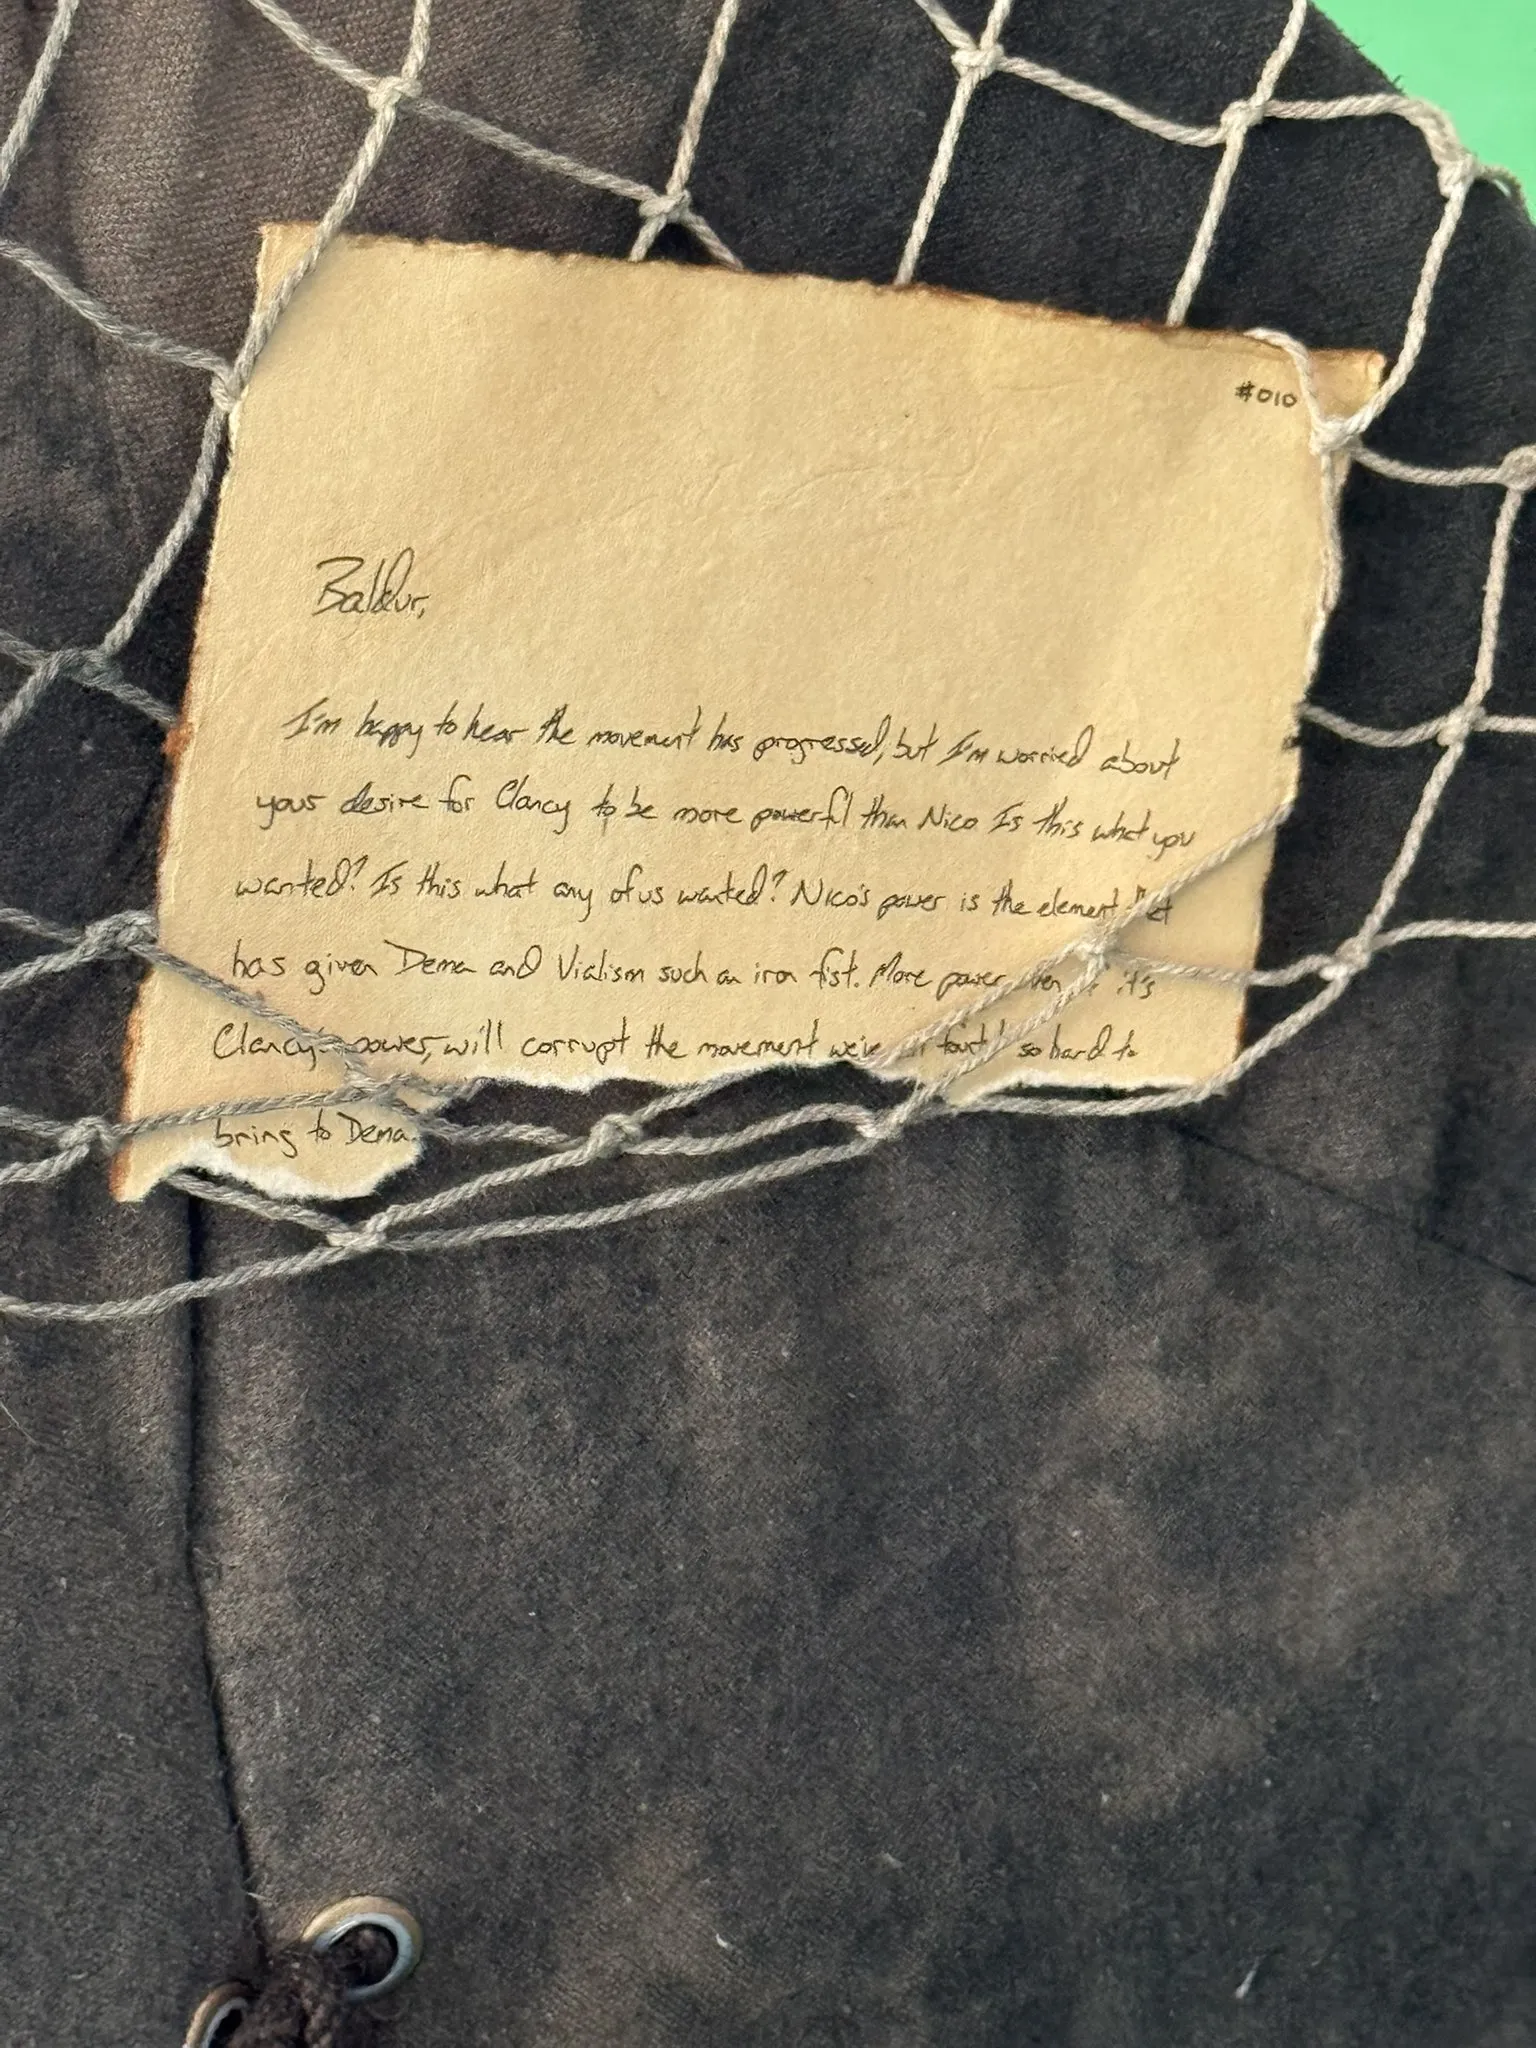 #010
Baldur,
I'm happy to hear the movement has progressed, but I'm worried about
your desire for Clancy to be more powerful than Nico Is this what you
wanted? Is this what any of us wanted? Nico's power is the element that
has given Dema and Vialism such an iron fist. More power, even if it's
Clancy's power, will corrupt the movement we've so hard to
bring to Dema.